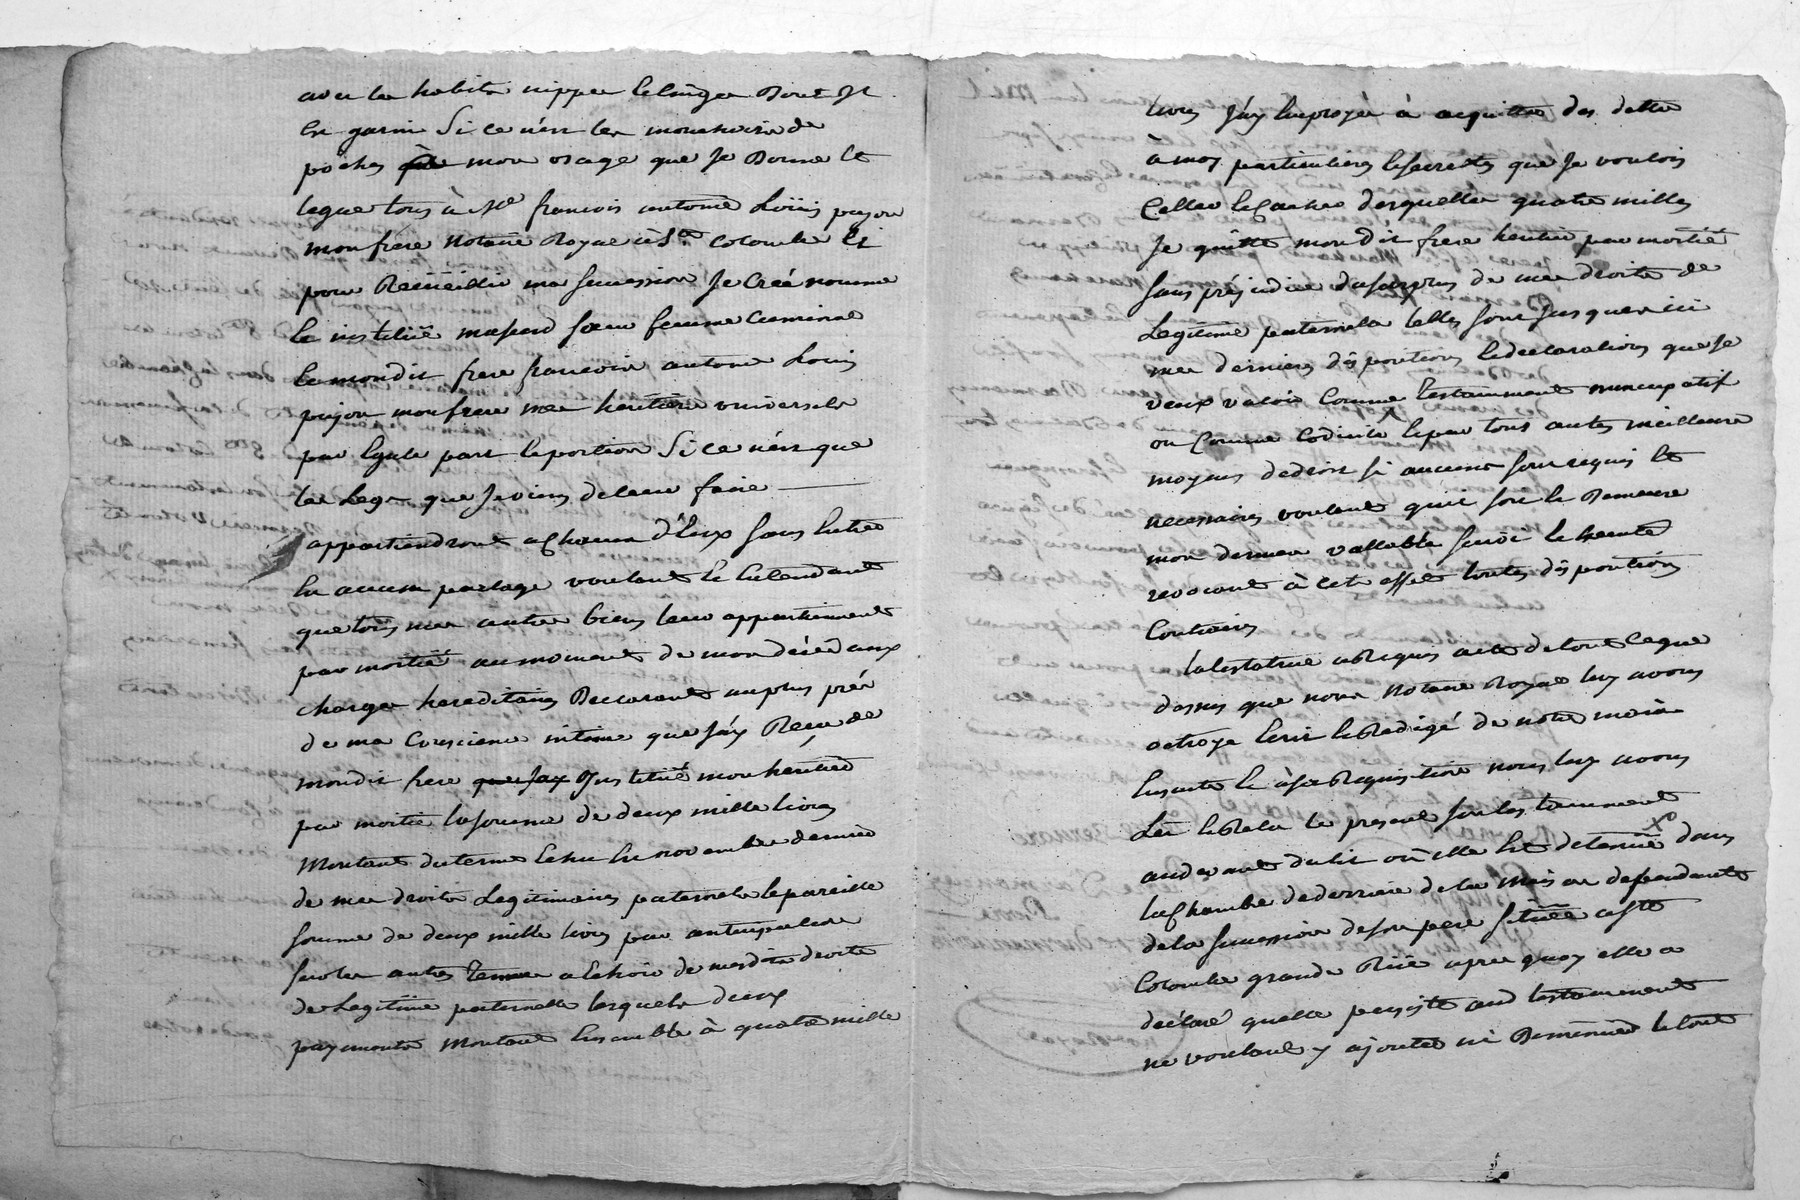 avec les habits nippes et linges dont Il
Est garni Si ce n'est les mouchoirs de
poches à mon usage que Je Donne et
legue tous à Me francois antoine Loüis pujon
mon frere Notaire Royal à Ste Colombe Et
pour Recüeillir ma succession Je Créé nomme
Et institüe ma soeur femme
Et mondit frere francois antoine Louis
pujon mon frere mes heritiers universels
par Egale part Et portion Si ce n'est que
les Legs que Je viens de leur faire
appartiendront a Chacun d'Eux sans Entrer
En aucun partage voulant Et Entendant
que tous mes autres biens leur appartiennent
par moitié au moment de mon décéd aux
charges hereditaires Declarant au plus près
de ma Conscience intime que J'ay Reçu de
mondit frere que J'ay Institüé mon heritier
par moitié la somme de deux mille livres
Montant du terme Echu En novembre dernier
de mes droits Legitimaires paternels Et pareille
somme de deux mille livres par anticipation
sur les autres termes a Echoir de mesdits droits
de Legitime paternelle lesquels deux
payments Montant Ensemble à quatre mille
livres J'ay Employée à acquitter des dettes
à moy particulieres Et secretes que Je voulois
Celler Et Cacher desquelles quatre milles
Je quitte mon dit frere heritier par moitié
sans préjudice du surplus de mes droits de
Legitime paternels telles sont Jusques ici
mes dernieres dispositions Et declarations que Je
veux valoir Comme testamment nuncupatif
ou Comme Codicile Et par tous autres meilleurs
moyens de droit si aucuns sont requis Et
necessaires voulant qu'il soit Et Demeure
mon dernier vallable suivi Et Executé
revocant à cet effet toutes dispositions
Contraires
la testatrice a Requis acte de tout Ce que
dessus que nous Notaire Royal luy avons
octroyé Ecrit Et Redigé de notre main
Ensuite Et à sa Requisition nous luy avons
Leu Et Relu le present son testamment
au devant du lit où elle Est detenüe dans
la Chambre de derriere de la Maison dependante
de la succession de son pere sitüée a Ste
Colombe grande Rüe apres quoy elle a
déclaré quelle persiste aud testamment
ne voulant y ajouter ni Diminuer le tout